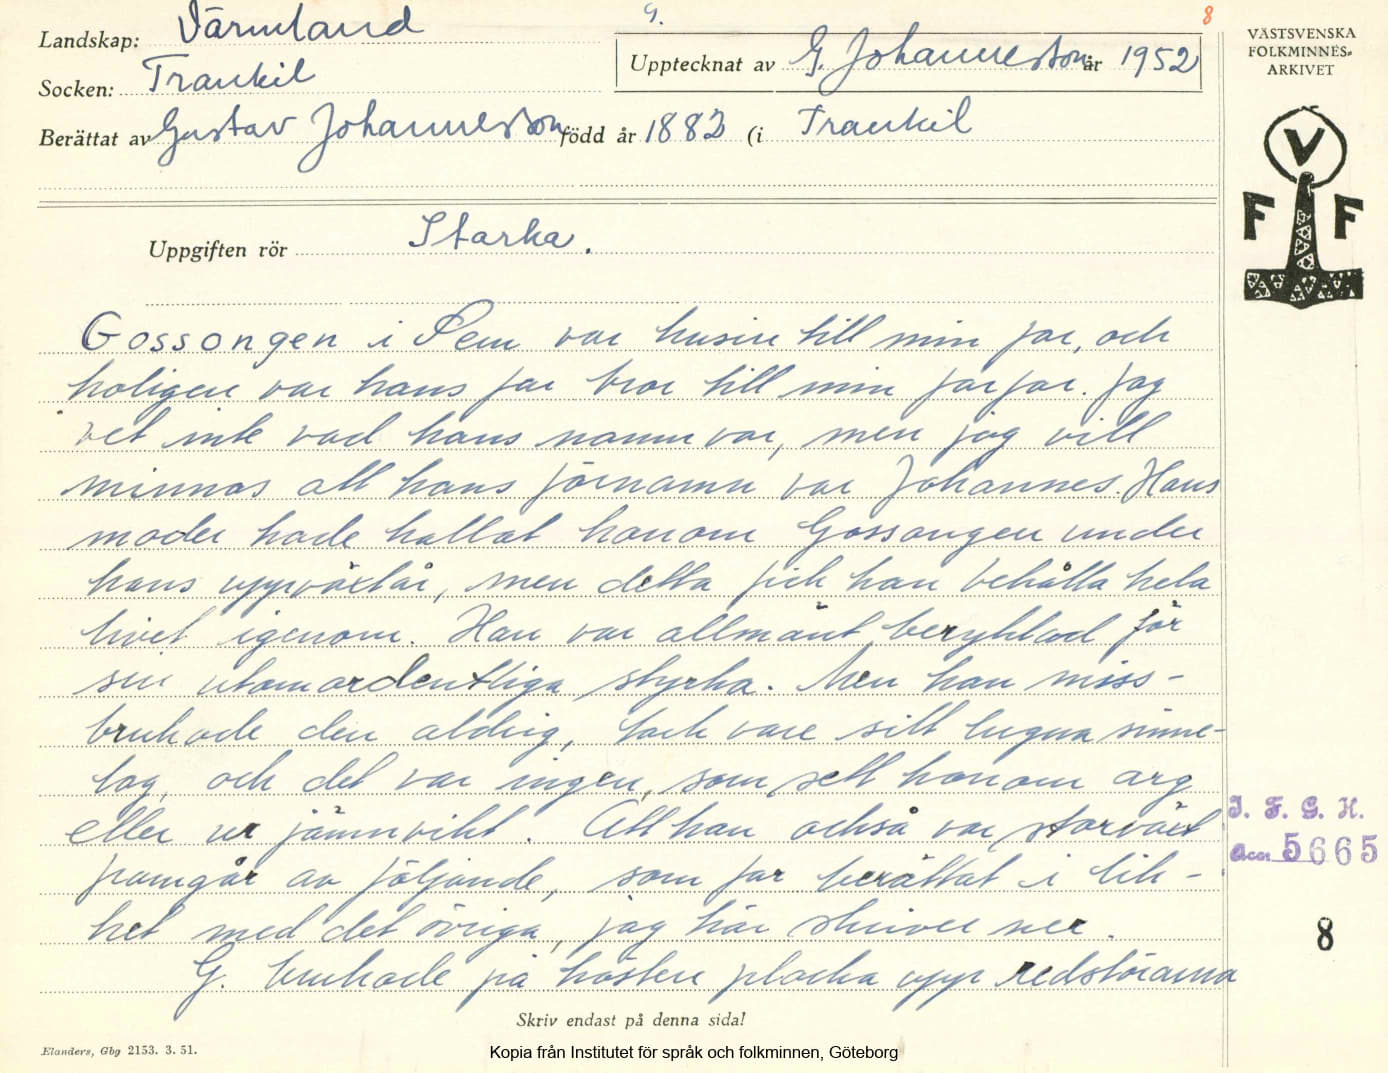 G.
8
Landskap: Värmland
Upptecknat av G. Johannesson år 1952
Socken: Trankil
Berättat av Gustav Johannesson född år 1883 (i Trankil
VÄSTSVENSKA
FOLKMINNES-
ARKIVET
V
F F
Uppgiften rör Starka.
Gossongen i Pem var kusin till min far, och
troligen var hans far bror till min farfar. Jag
vet inte vad hans namn var, men jag vill
minnas att hans förnamn var Johannes. Hans
moder hade kallat honom Gossongen under
hans uppväxtår, men detta fick han behålla hela
livet igenom. Han var allmänt beryktad för
sin utomordentliga styrka. Men han miss-
brukade den aldrig, tack vare sitt lugna sinne-
lag, och det var ingen, som sett honom arg
eller ur jämnvikt. Att han också var storväxt
framgår av följande, som far berättat i lik-
het med det övriga, jag här skriver ner.
G. brukade på hösten plocka upp redstörarna
I. F. G. H.
Acc. 5665
8
Skriv endast på denna sida!
Elanders, Gbg 2153. 3. 51.
Kopia från Institutet för språk och folkminnen, Göteborg